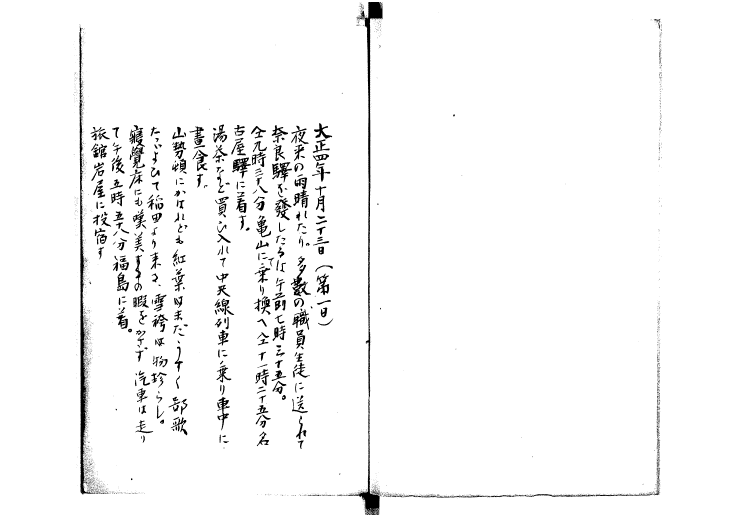 大正四年十月二十三日(第一日)
夜来の雨晴れたり。多数の職員生徒に送られて
奈良驛を發したるは午前七時三十五分。
仝九時三十八分亀山にて乗り換へ仝十一時二十五分名
古屋驛に着す。
湯茶など買ひ入れて中央線列車に乗り車中に
晝食す。
山勢頓にかはれども紅葉は未だうすく
たゞよひて稲田より来る雪袴は物珍らし。
寝覺床にも嘆美するの暇をかさず汽車は走り
て午後五時五十八分福島に着。
旅館岩屋に投宿す